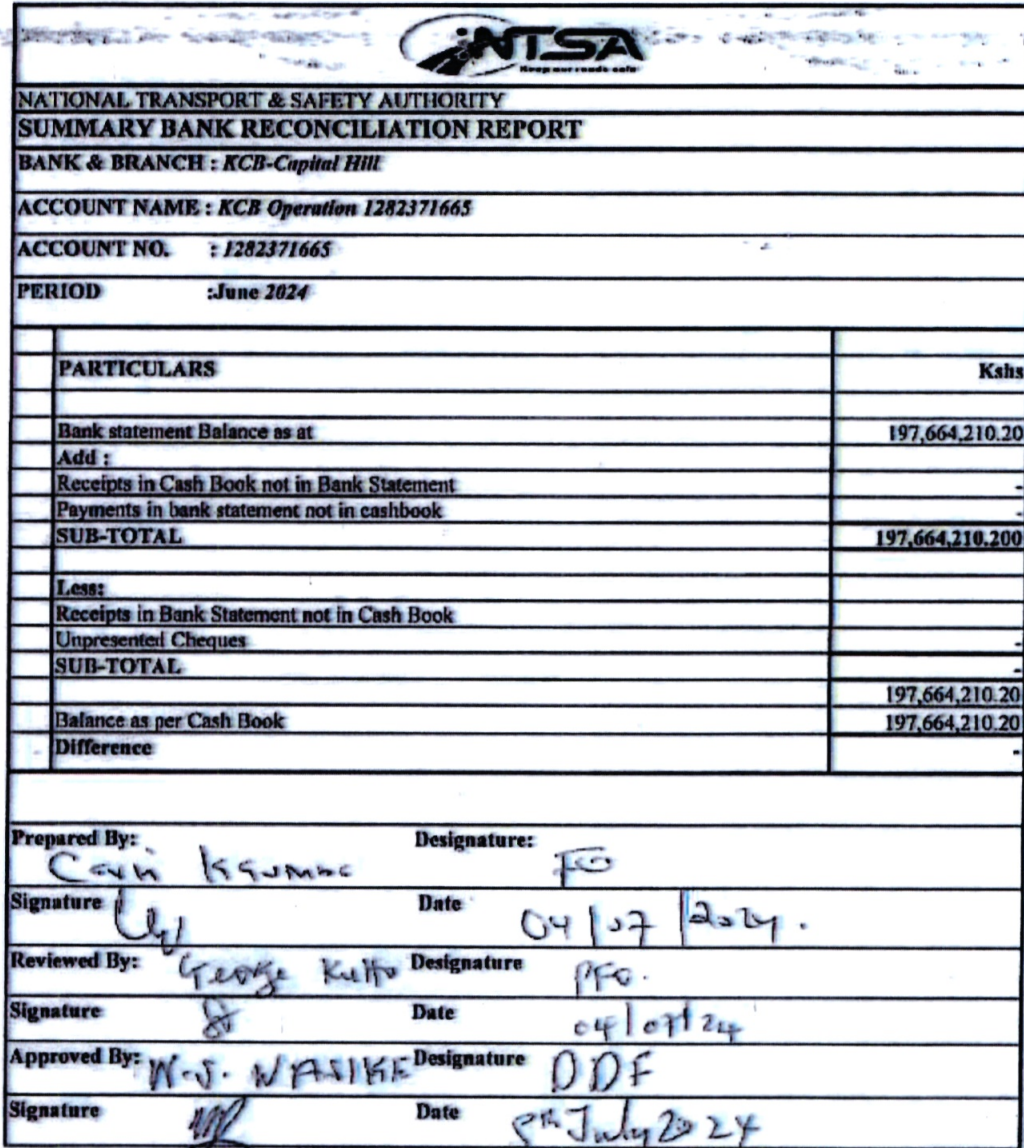 NTSA
Keep our roads safe
NATIONAL TRANSPORT & SAFETY AUTHORITY
SUMMARY BANK RECONCILIATION REPORT
BANK & BRANCH : KCB-Capital Hill
ACCOUNT NAME : KCB Operation 1282371665
ACCOUNT NO. : 1282371665
PERIOD :June 2024
PARTICULARS Kshs
Bank statement Balance as at 197,664,210.20
Add :
Receipts in Cash Book not in Bank Statement -
Payments in bank statement not in cashbook -
SUB-TOTAL 197,664,210.200
Less:
Receipts in Bank Statement not in Cash Book
Unpresented Cheques -
SUB-TOTAL -
197,664,210.20
Balance as per Cash Book 197,664,210.20
Difference -
Prepared By: Designature: FO
Signature Date 04/07/2024.
Reviewed By: George Designature PFO.
Signature Date 04/07/24
Approved By: W.S. WASIKE Designature DDF
Signature Date July 2024